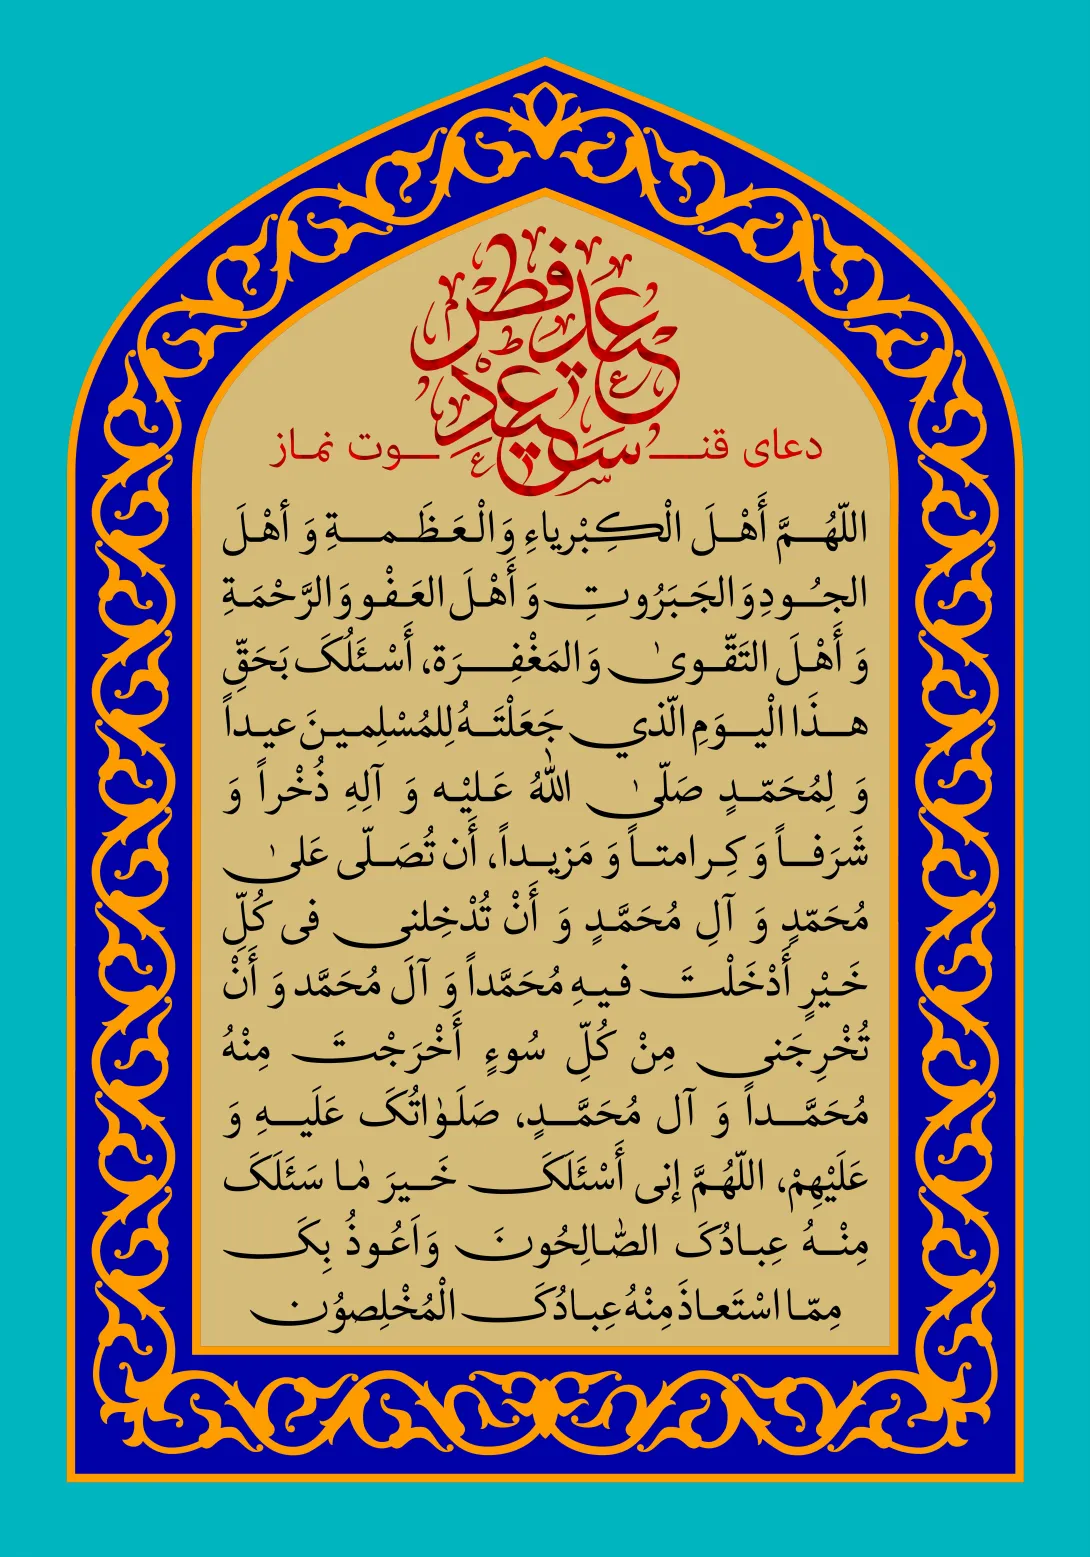 دعای قنوت نماز
عید سعید فطر
اللّهُمَّ أَهْلَ الْكِبْرياءِ وَالْعَظَمةِ وَ أهْلَ
الجُودِ وَالجَبَرُوتِ وَ أَهْلَ العَفْو وَالرَّحْمَةِ
وَ أَهْلَ التَقّوىٰ وَالمَغْفِرَة، أَسْئَلُکَ بَحَقِّ
هذَا الْيوَمِ الّذي جَعَلْتَهُ لِلمُسْلِمينَ عيداً
وَ لِمُحَمّدٍ صَلّىٰ اللّٰهُ عَلیْه وَ آلِهِ ذُخْراً وَ
شَرَفاً وَ كِرامتاً وَ مَزيداً، أَن تُصَلّی عَلىٰ
مُحَمّدٍ وَ آلِ مُحَمَّدٍ وَ أَنْ تُدْخِلنی فی كُلِّ
خَيْرٍ أَدْخَلْتَ فيهِ مُحَمَّداً وَ آلَ مُحَمَّد وَ أَنْ
تُخْرِجَنی مِنْ كُلِّ سُوءٍ أَخْرَجْتَ مِنْهُ
مُحَمَّداً وَ آل مُحَمَّدٍ، صَلَوٰاتُکَ عَلَيهِ وَ
عَلَيْهِمْ، اللّهُمَّ إنی أَسْئَلَکَ خَيرَ مٰا سَئَلَکَ
مِنْهُ عِبادُکَ الصّٰالِحُونَ وَاَعُوذُ بِکَ
مِمّا اسْتَعاذَ مِنْهُ عِبادُکَ الْمُخْلِصوُن